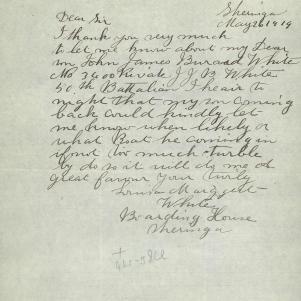 Sheringa
May 26 1919
Dear Sir
I thank you very much
to let me know about my Dear
son John James Burand White
No 3400 Private J J B White
50th Battalian I hear to
night that my son Coming
back Could kindly let
me know when likely or
what Boat he Coming in
if not too much truble
by do so it will do me od
great favour your turly
Louisa Margett
White
Boarding House
Sheringa